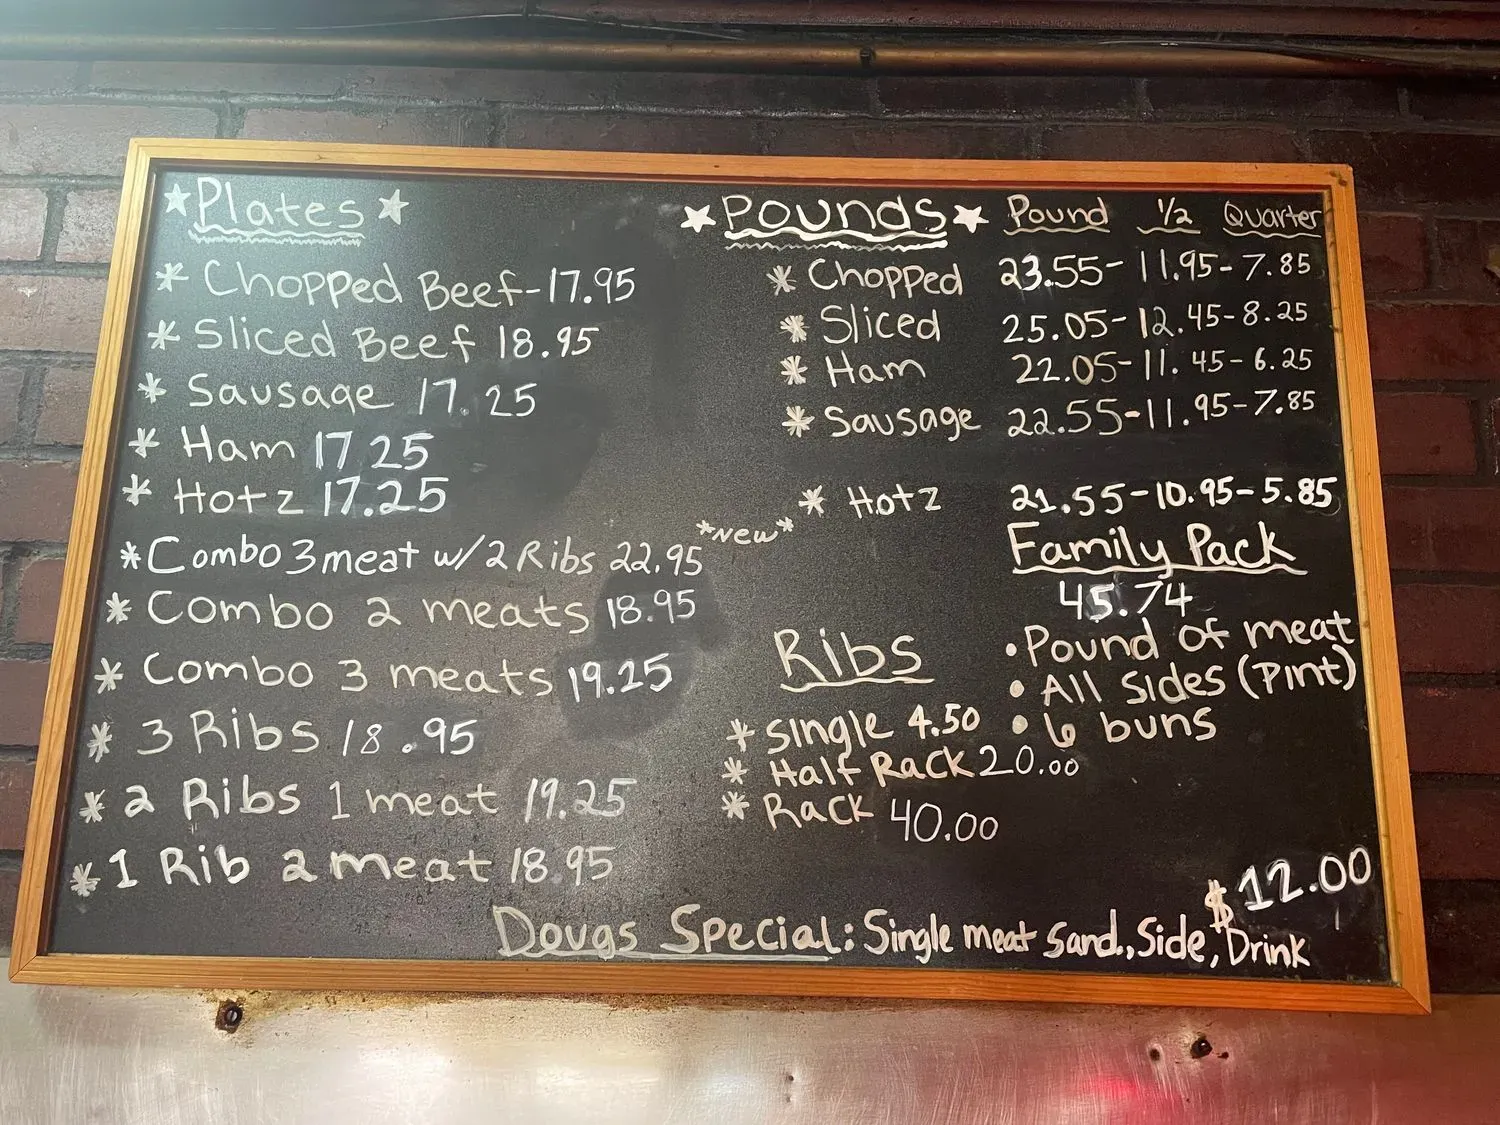 Plates
* Chopped Beef-17.95
* Sliced Beef 18.95
* Sausage 17.25
* Ham 17.25
* Hotz 17.25
* Combo 3 meat w/ 2 Ribs 22.95 *New*
* Combo 2 meats 18.95
* Combo 3 meats 19.25
* 3 Ribs 18.95
* 2 Ribs 1 meat 19.25
* 1 Rib 2 meat 18.95
Pounds Pound 1/2 Quarter
* Chopped 23.55-11.95-7.85
* Sliced 25.05-12.45-8.25
* Ham 22.05-11.45-6.25
* Sausage 22.55-11.95-7.85
* Hotz 21.55-10.95-5.85
Family Pack
45.74
• Pound of meat
• All Sides (Pint)
• 6 buns
Ribs
* Single 4.50
* Half Rack 20.00
* Rack 40.00
$12.00
Dougs Special: Single meat Sand., Side, Drink